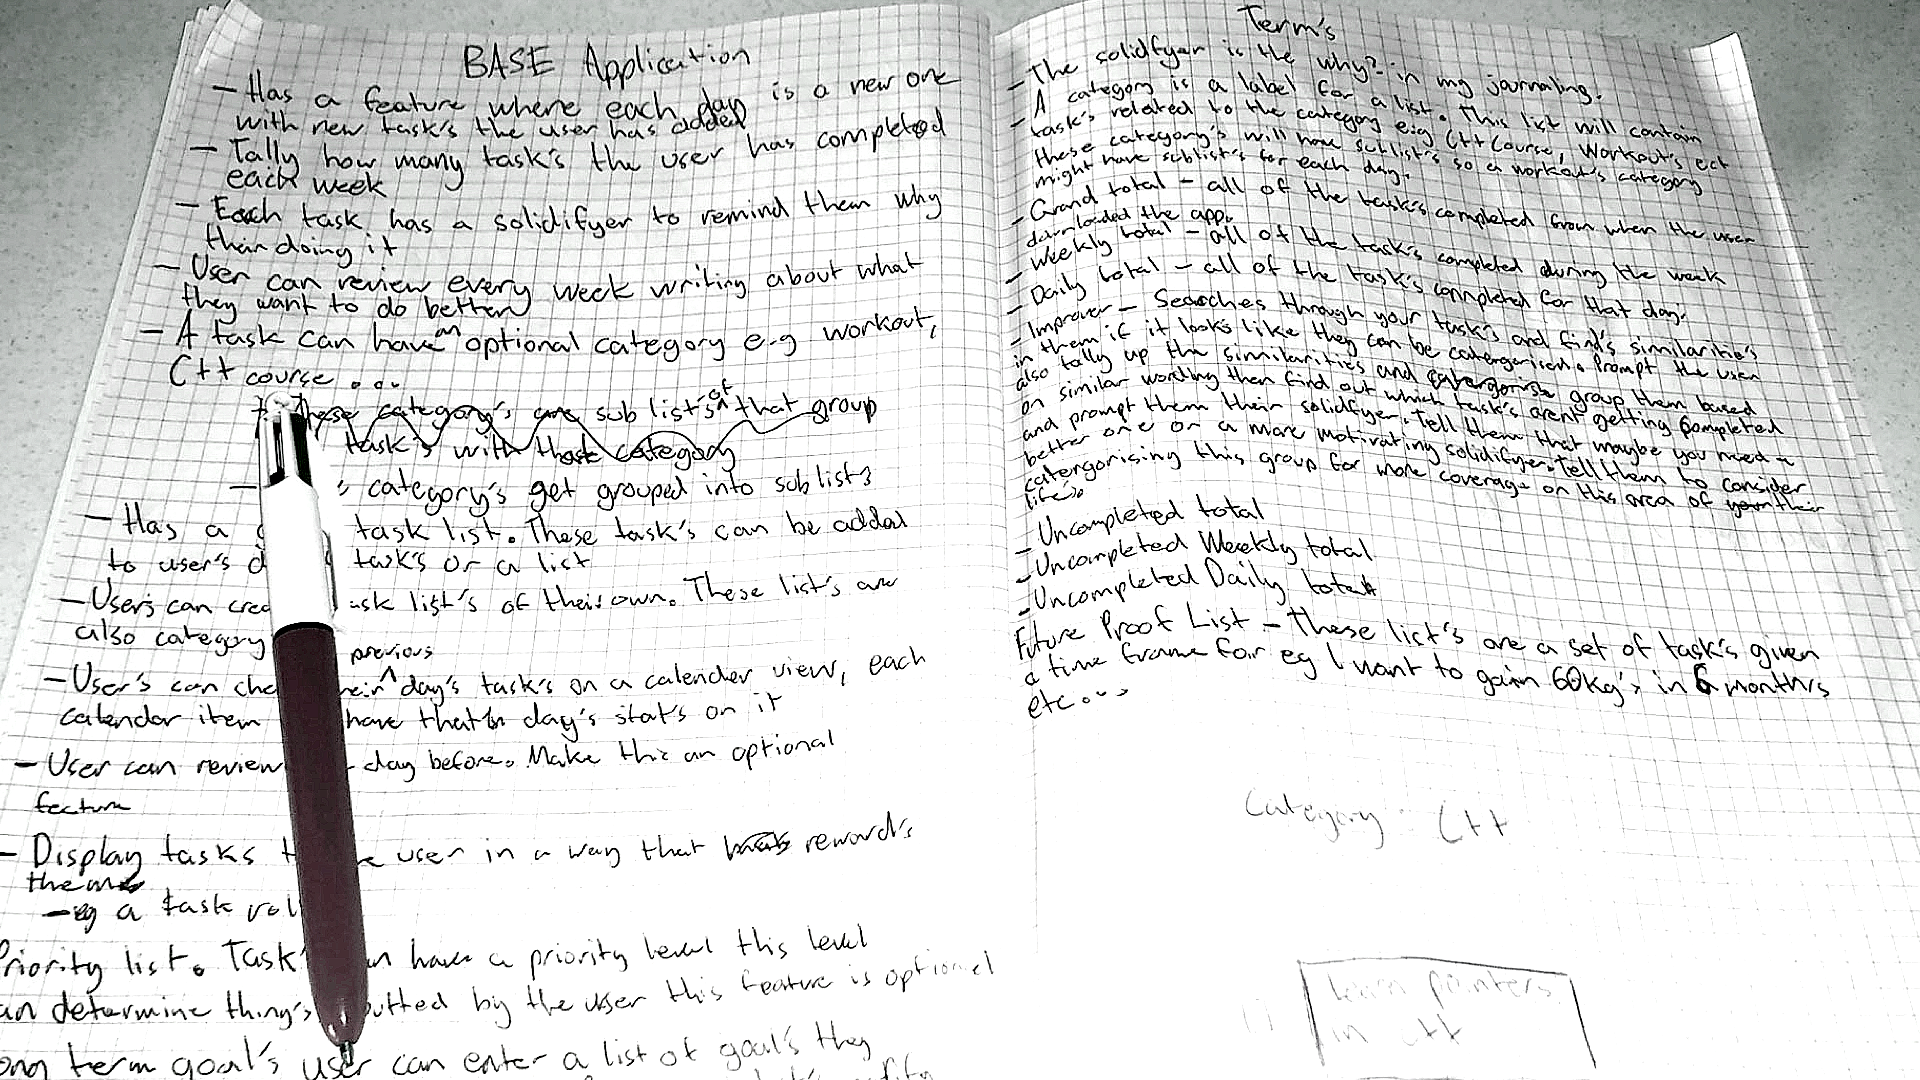 BASE Application
- Has a feature where each day is a new one
with new task's the user has added
- Tally how many task's the user has completed
each week
- Each task has a solidifyer to remind them why
their doing it
- User can review every week writing about what
they want to do better
- A task can have an optional category e.g workout,
C++ course ...
These category's are sub list's of that group
task's with that category
category's get grouped into sub lists
- Has a task list. These task's can be added
to user's task's or a list
- Users can task list's of their own. These list's are
also category
- User's can previous day's task's on a calender view, each
calendar item have that day's stat's on it
- User can review day before. Make this an optional
feature
- Display tasks user in a way that reward's
them
- eg a task
Priority list. Task's can have a priority level this level
can determine thing's by the user this feature is optional
long term goal's user can enter a list of goal's they
Term's
- The solidfyer is the why? in my journaling.
- A category is a label for a list. This list will contain
task's related to the category e.g C++ Course, Workout's ect
these category's will have sublist's so a workout's category
might have sublist's for each day.
- Grand total - all of the task's completed from when the user
downloaded the app.
- Weekly total - all of the task's completed during the week
- Daily total - all of the task's completed for that day.
- Improver - Searches through your task's and find's similaritie's
in them if it looks like they can be catergorised. Prompt the user
also tally up the similarities and catergorise group them based
on similar wording then find out which task's arent getting completed
and prompt them their solidfyer. Tell them that maybe you need a
better one or a more motivating solidifyer. Tell them to consider
catergorising this group for more coverage on this area of your their
life.
- Uncompleted total
- Uncompleted Weekly total
- Uncompleted Daily total
Future Proof List - These list's are a set of task's given
a time frame for eg I want to gain 60kg's in 6 months
etc...
Category C++
learn pointers
in C++